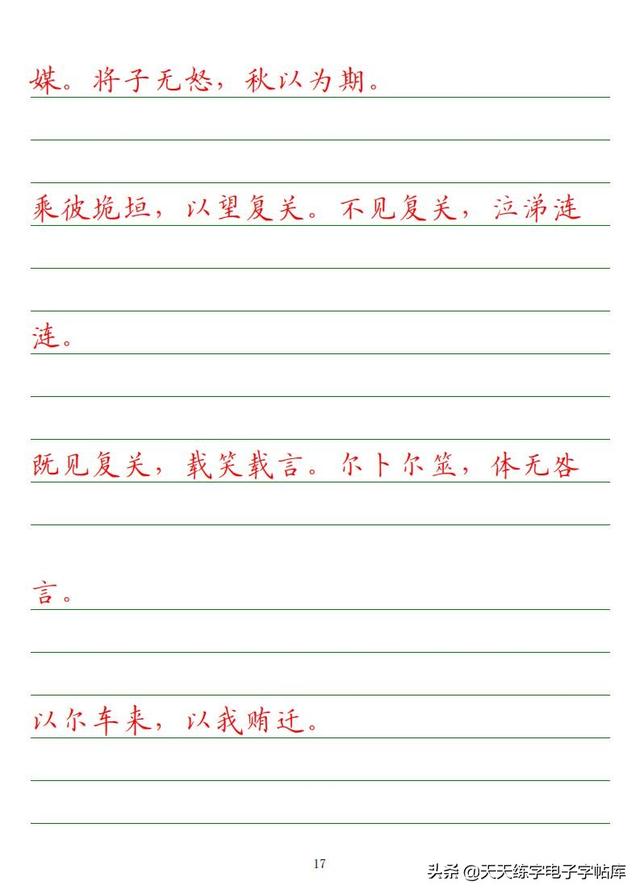 媒。将子无怒，秋以为期。
乘彼垝垣，以望复关。不见复关，泣涕涟
涟。
既见复关，载笑载言。尔卜尔筮，体无咎
言。
以尔车来，以我贿迁。
17
头条 @天天练字电子字帖库